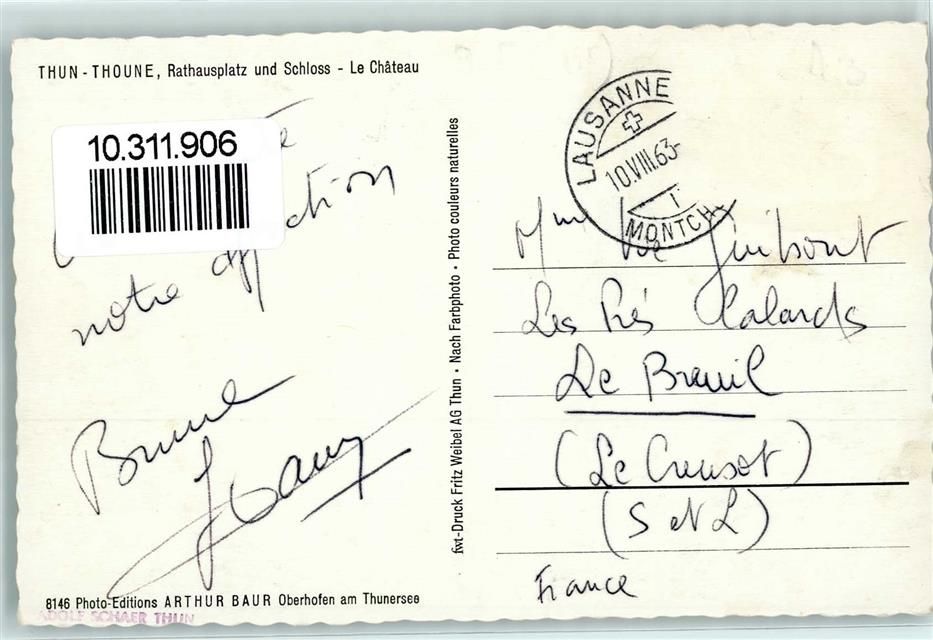 THUN - THOUNE, Rathausplatz und Schloss - Le Château
10.311.906
notre affection
Brune
8146 Photo-Editions ARTHUR BAUR Oberhofen am Thunersee
ADOLF SCHAER THUN
fwt-Druck Fritz Weibel AG Thun • Nach Farbphoto • Photo couleurs naturelles
LAUSANNE
10.VIII.63-
1
MONTCH.
Mme Vve Guibout
Les Prés Calards
Le Breuil
(Le Creusot)
(S et L)
France